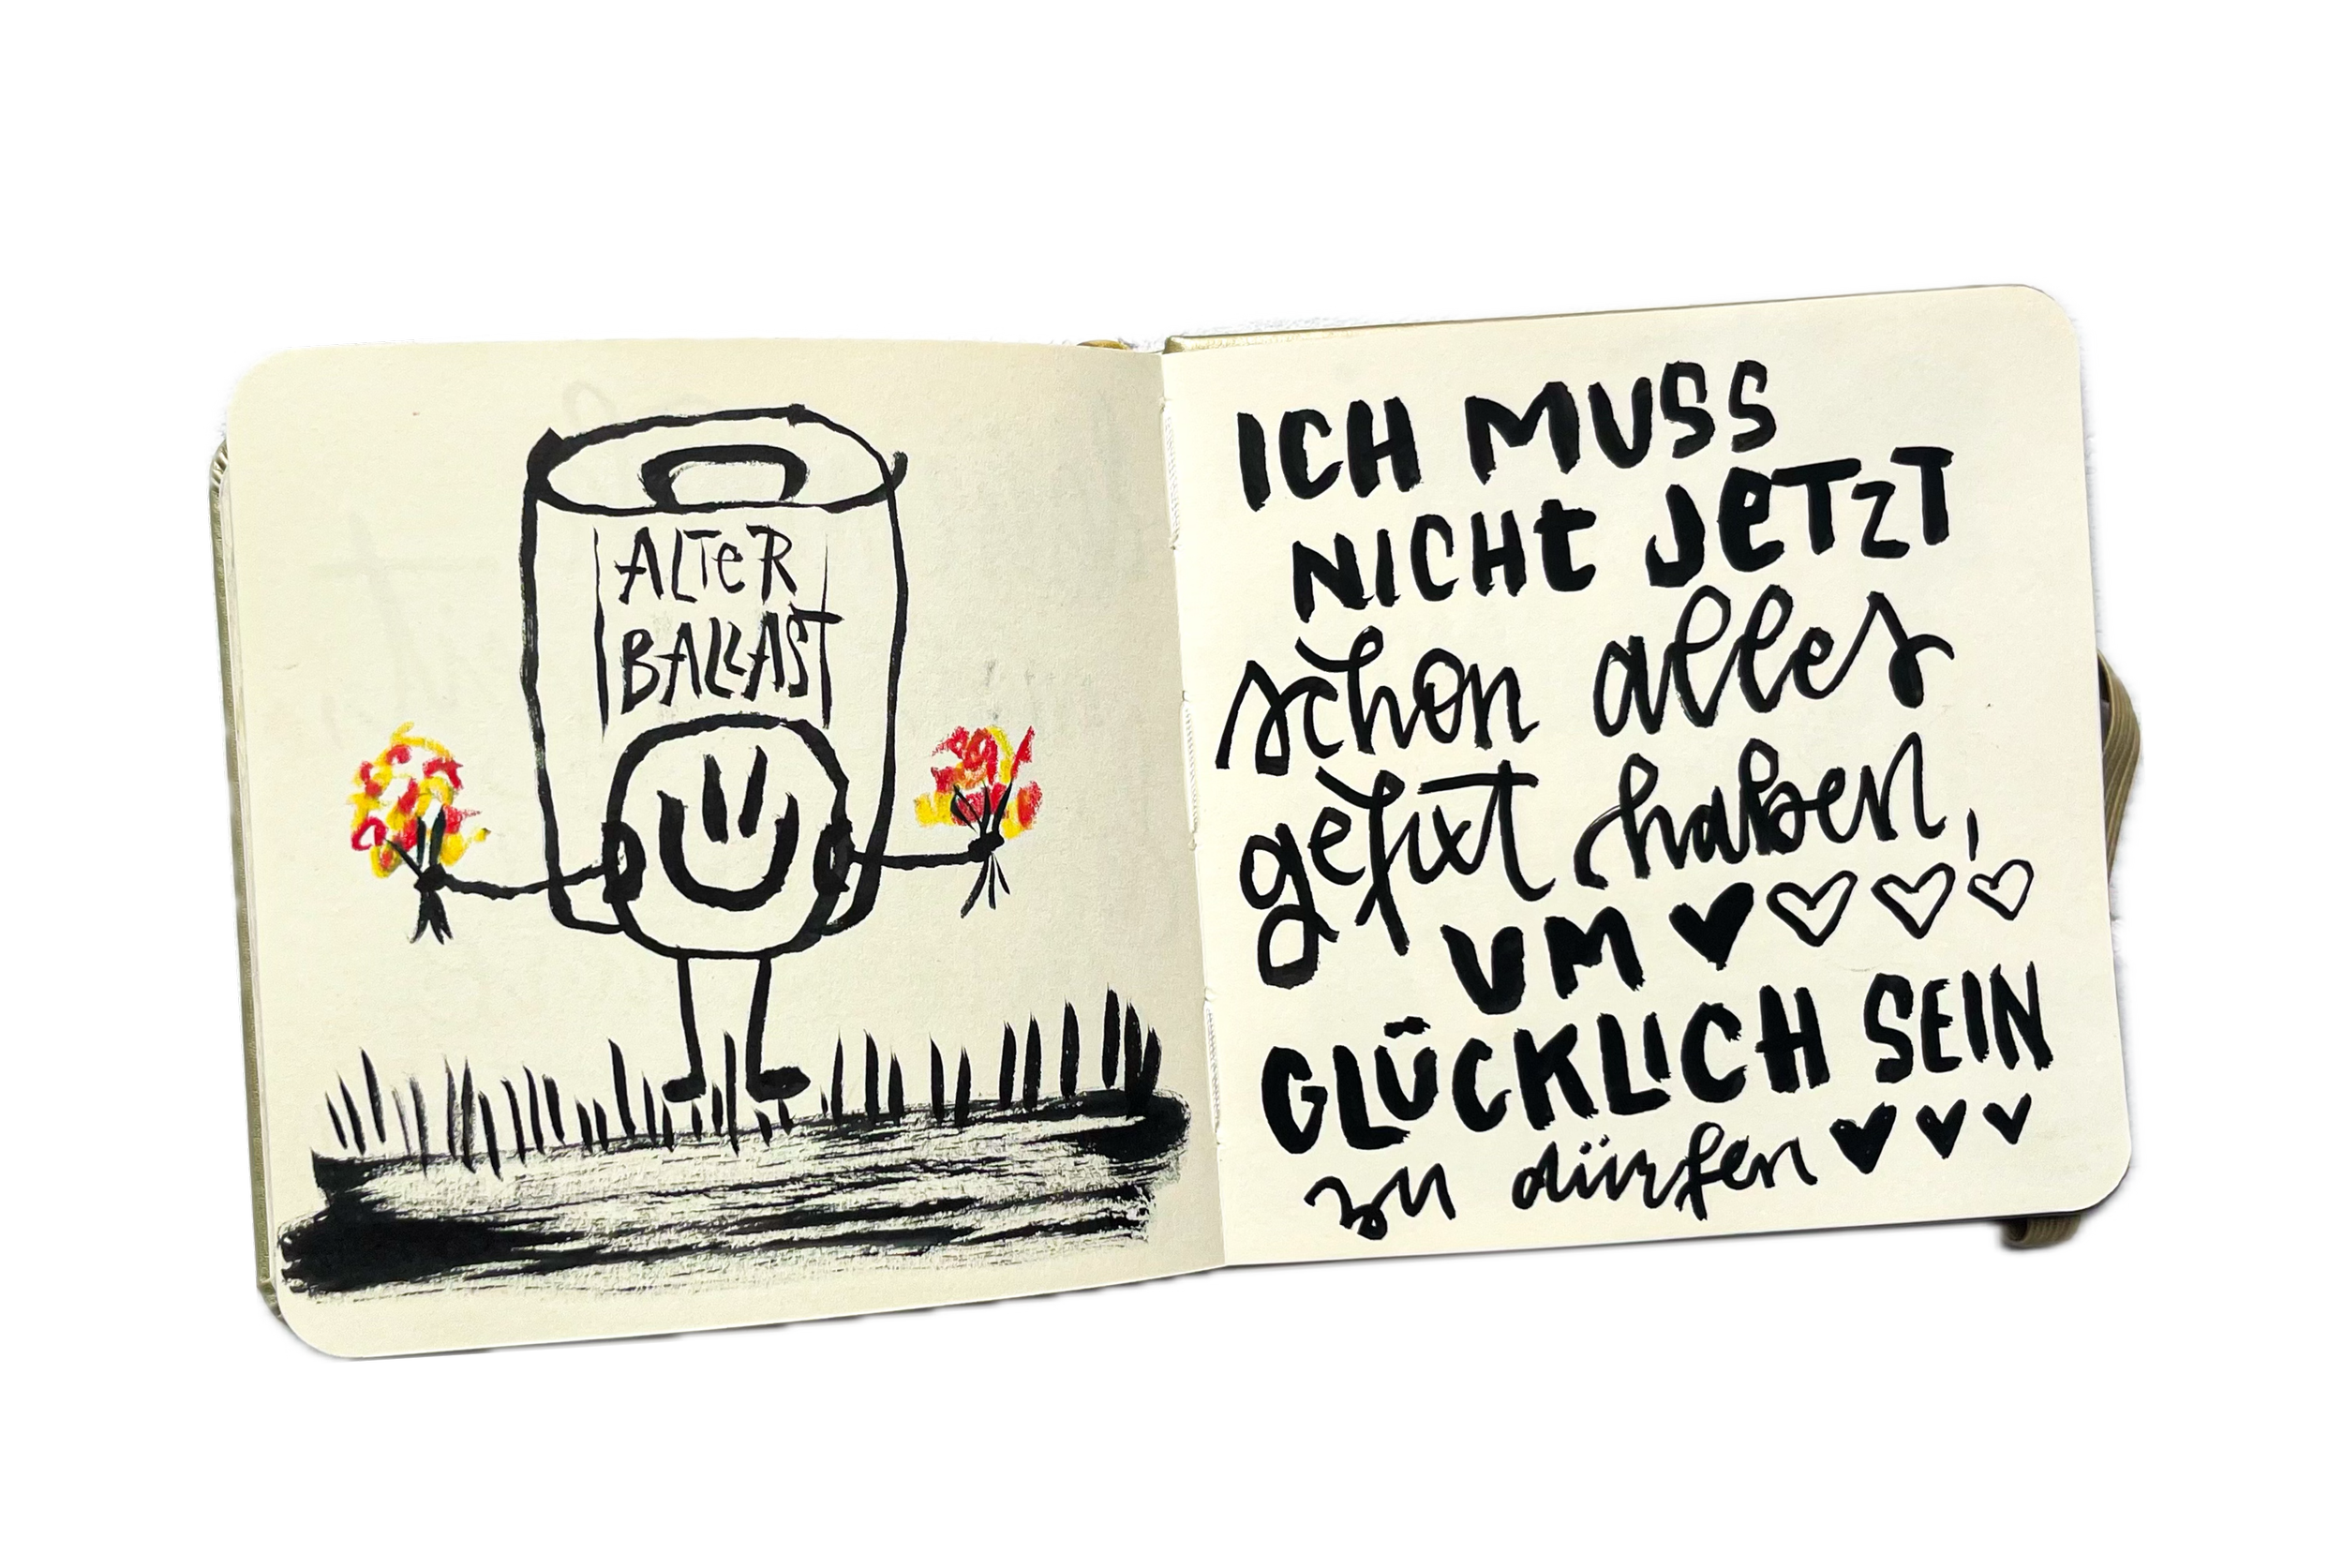 ALTeR
BALLAST
ICH MUSS
NICHt JeTZT
schon alles
gefixt haben,
UM
GLÜCKLICH SEIN
zu dürfen